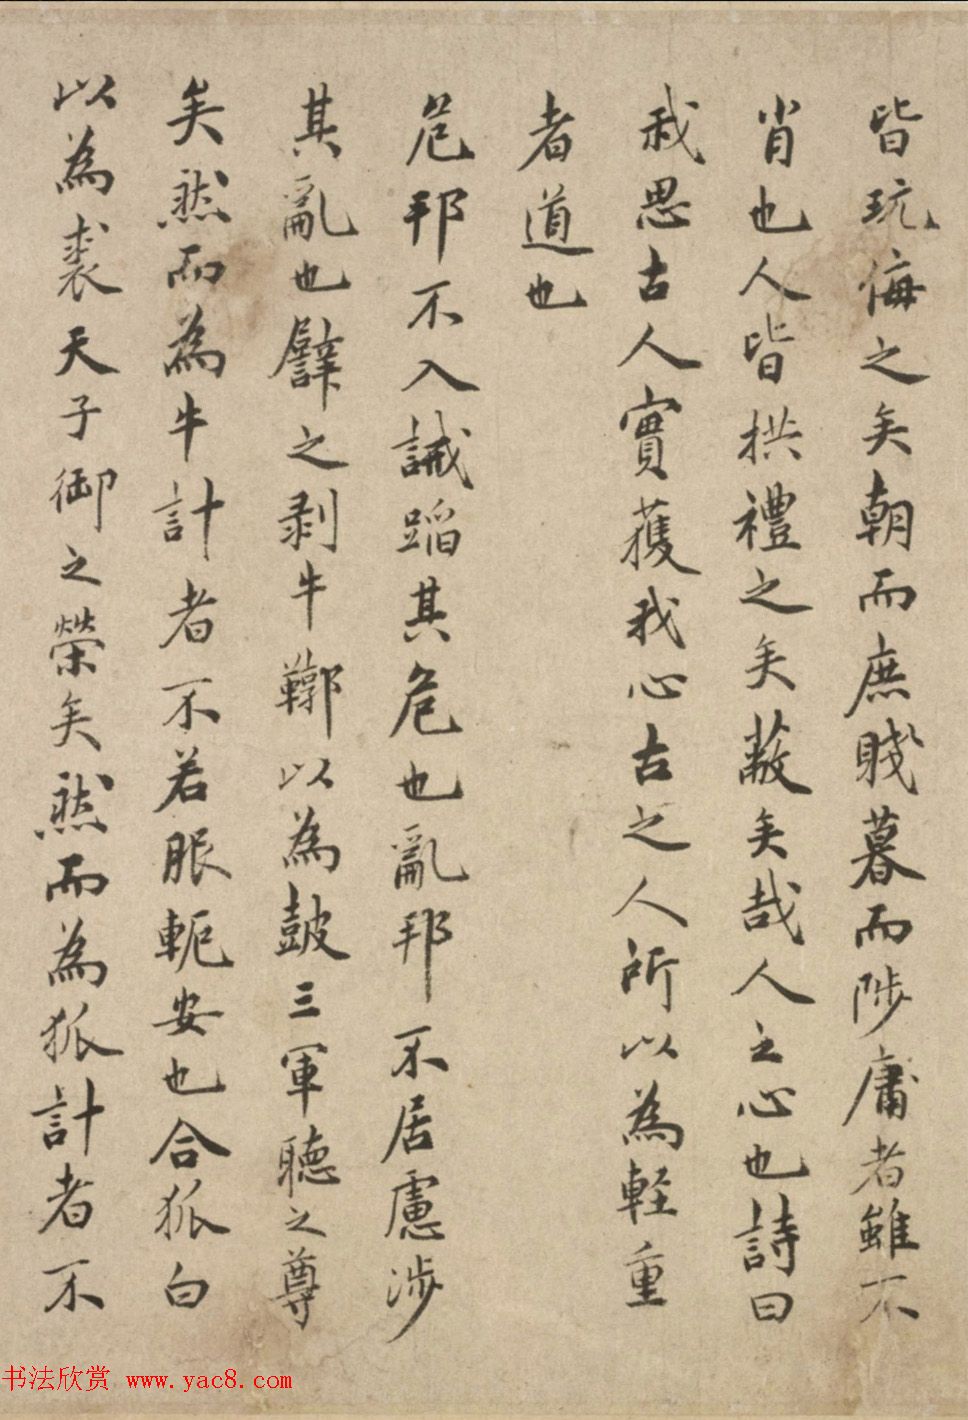 皆玩侮之矣朝而庶賤暮而陟庸者雖不
肖也人皆拱禮之矣蔽矣哉人之心也詩曰
我思古人實獲我心古之人所以為軽重
者道也
危邦不入誡蹈其危也亂邦不居慮涉
其亂也譬之剥牛鞹以為鼓三軍聴之尊
矣然而為牛計者不若服軛安也合狐白
以為裘天子御之榮矣然而為狐計者不
书法欣赏 www.yac8.com